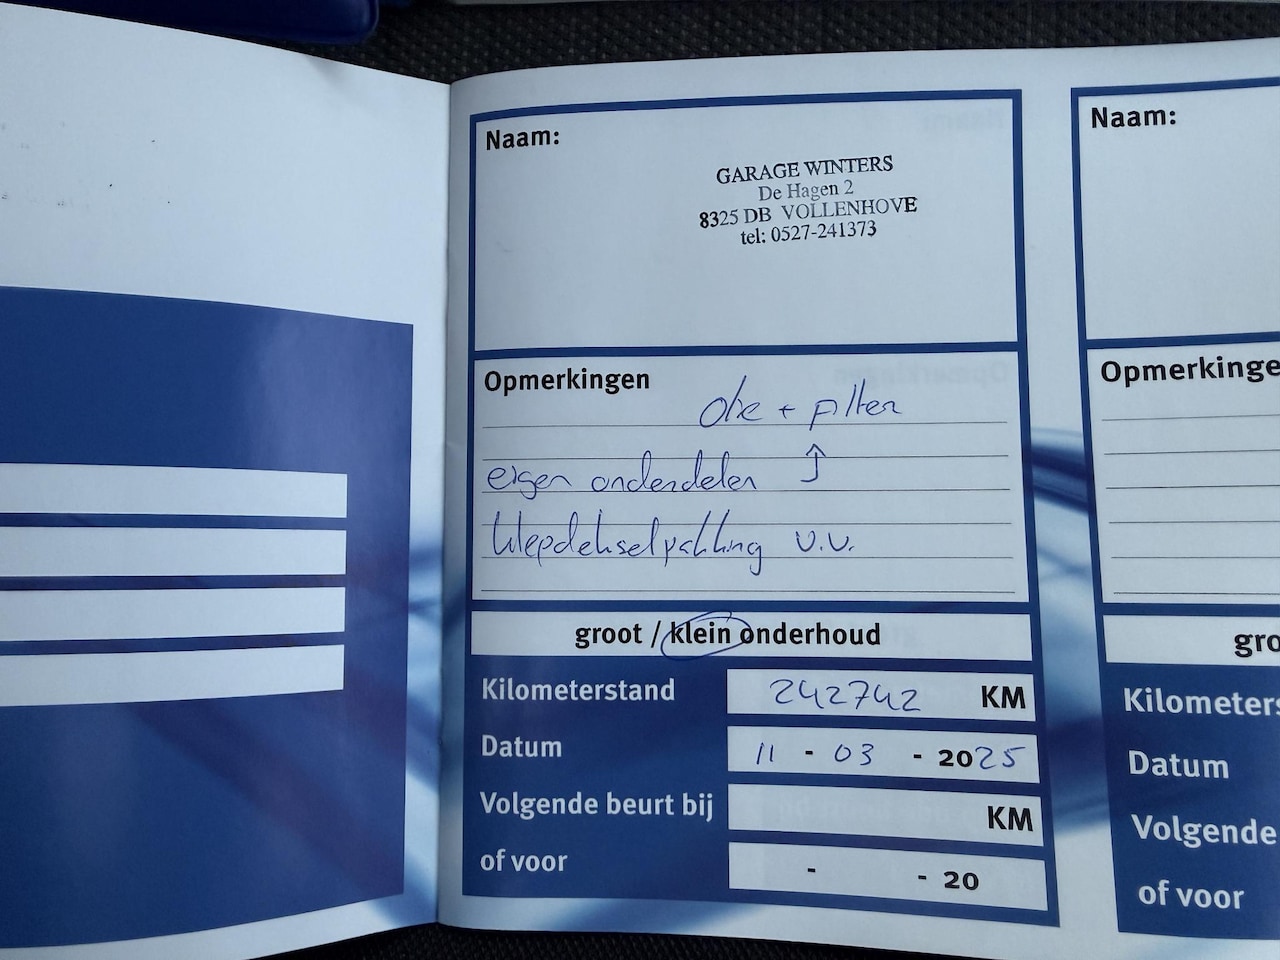 Naam:
GARAGE WINTERS
De Hagen 2
8325 DB VOLLENHOVE
tel: 0527-241373
Opmerkingen
olie + filter
eigen onderdelen ↑
klepdekselpakking v.v.
groot / klein onderhoud
Kilometerstand 242742 KM
Datum 11 - 03 - 2025
Volgende beurt bij KM
of voor - - 20
Naam:
Opmerkinge
gro
Kilometers
Datum
Volgende
of voor